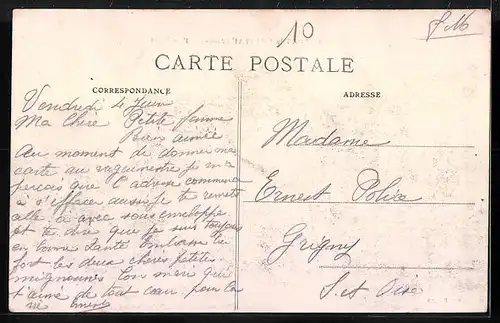 10
F. M
CARTE POSTALE
CORRESPONDANCE
ADRESSE
Vendredi 4 Juin
Ma Chère Petite femme
Bien aimée
Au moment de donner ma
carte au vaguemestre je m'a
perçois que l'adresse commence
à s'effacer aussi je te remets
celle à avec sous enveloppe
et te dire que je suis toujours
en bonne santé Embrasse bien
fort les deux chères petites
mignonnes Ton mari qui
t'aime de tout cœur pour la
vie Ernest
Madame
Ernest
Grigny
S. et Oise